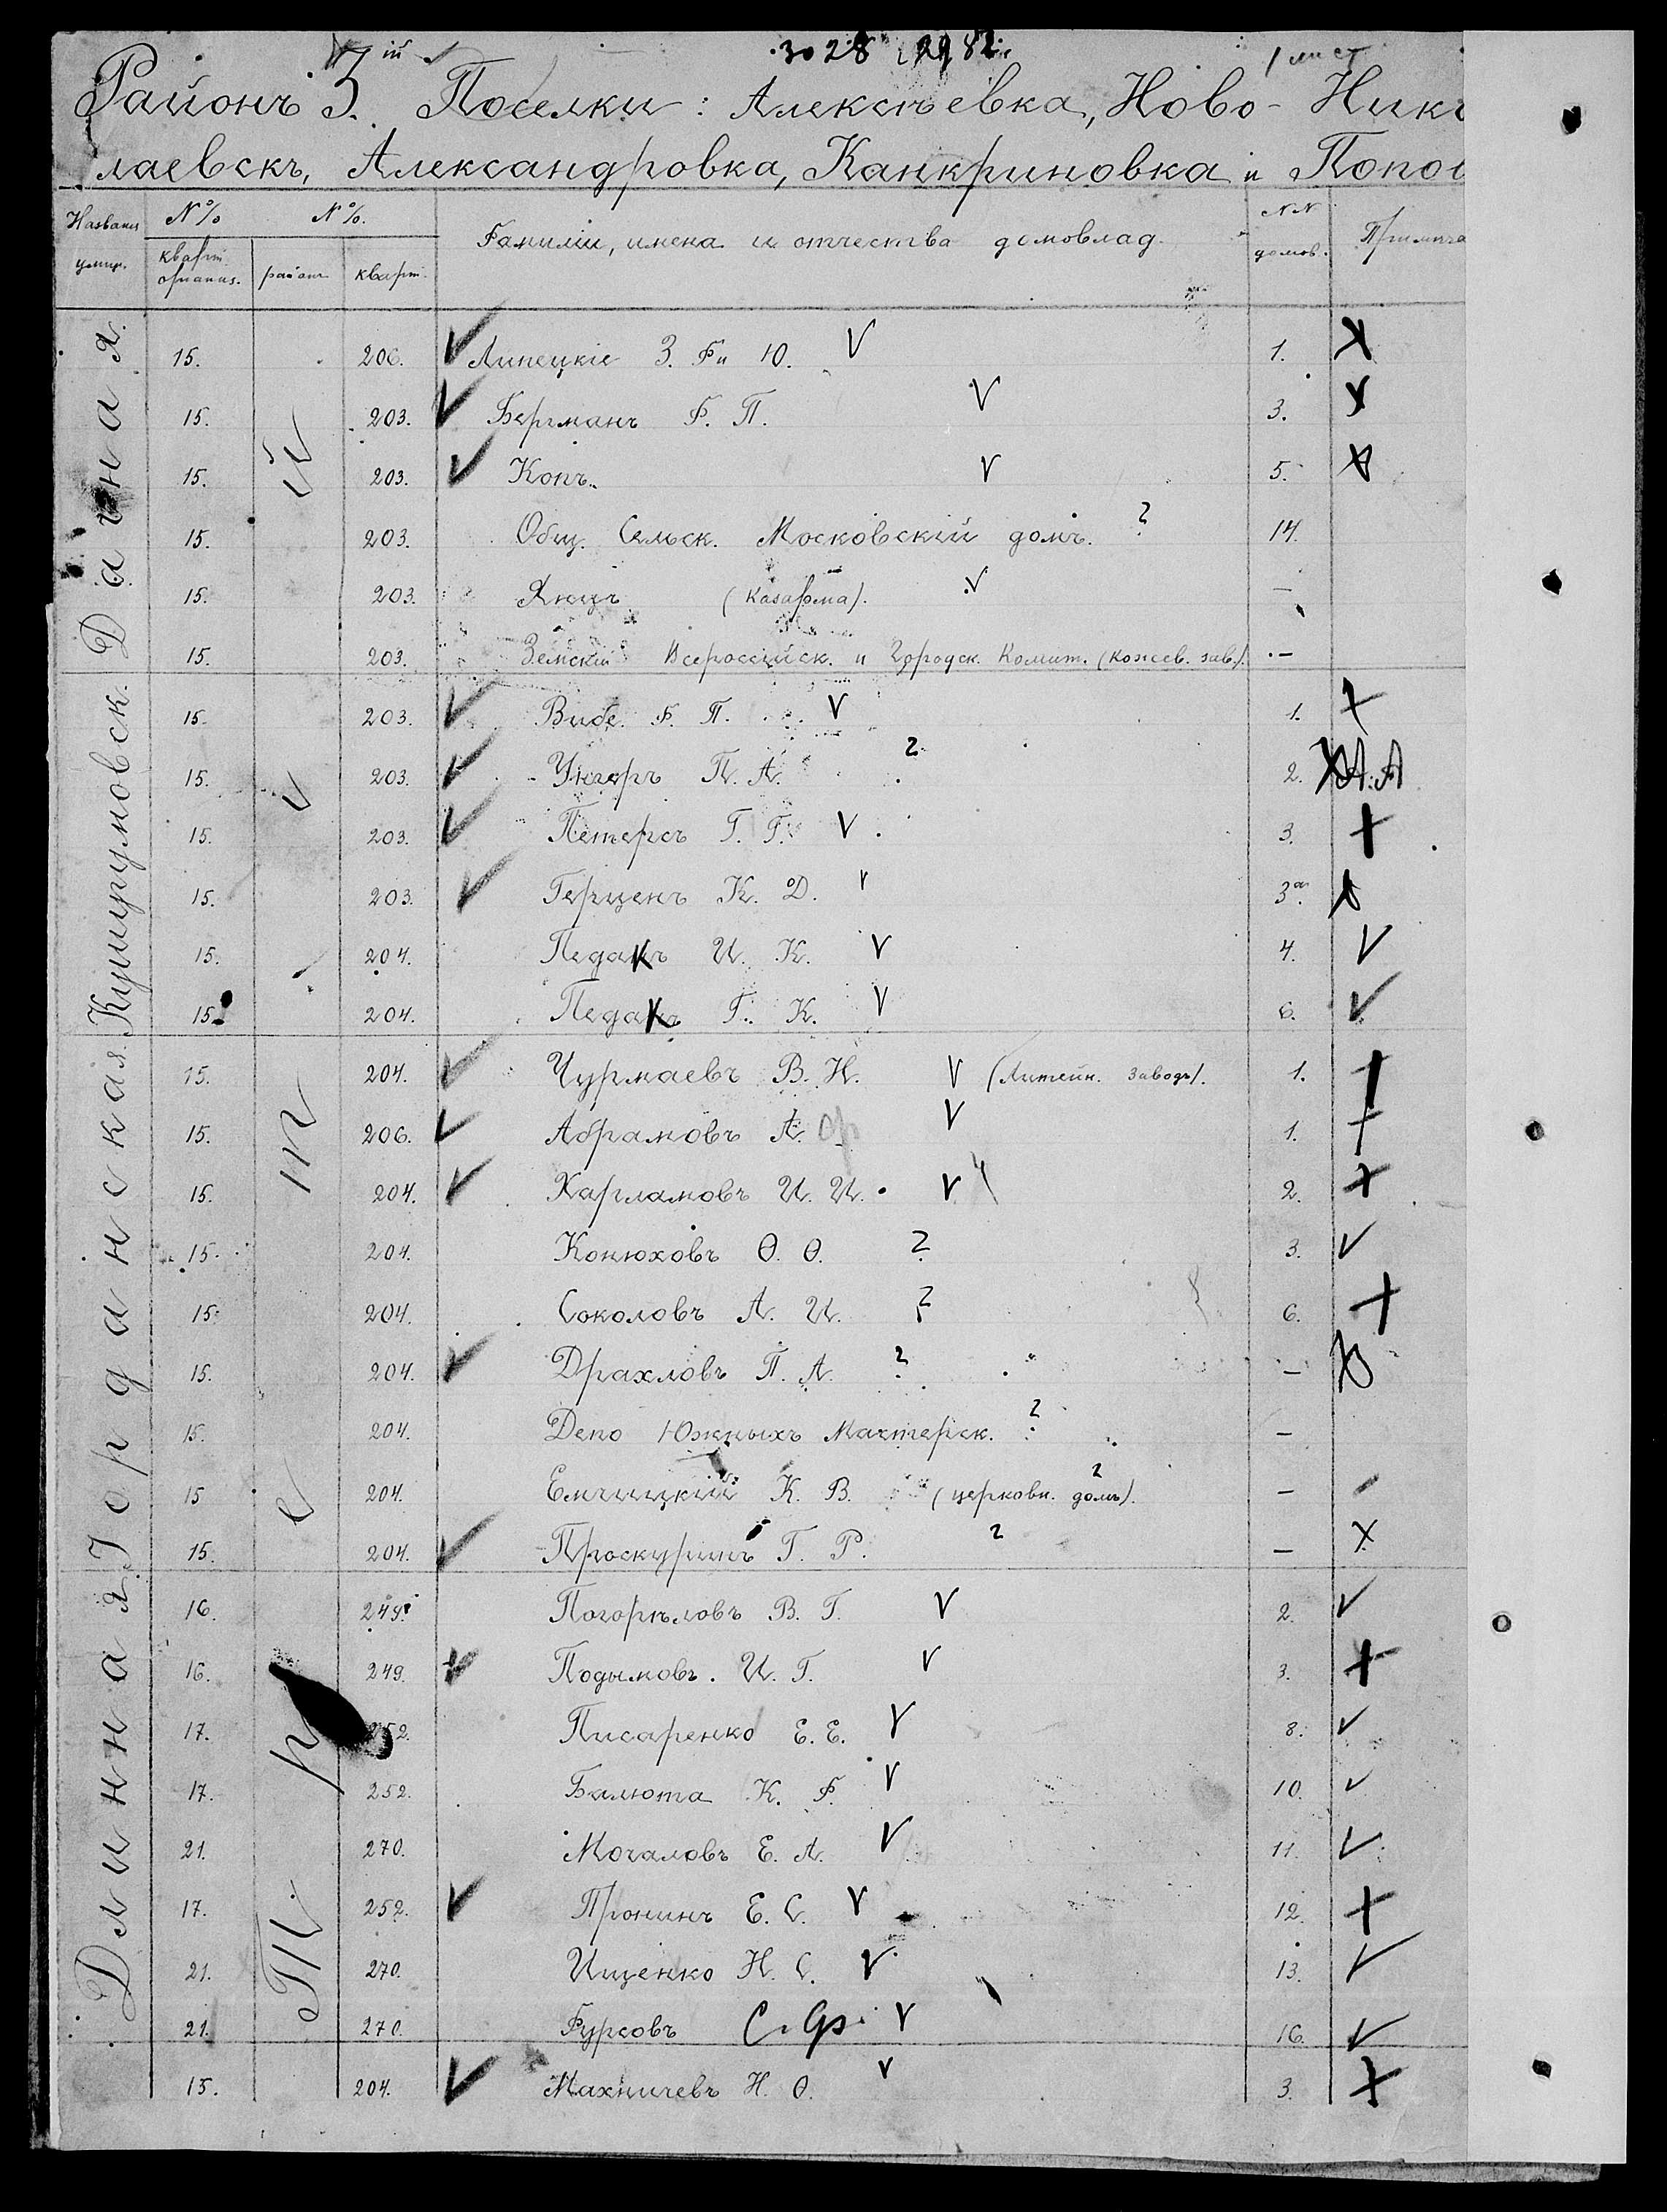 3028 2982
1 лист
Районъ 3ій Поселки: Алексѣевка, Ново-Нико
лаевскъ, Александровка, Канкриновка и Попов
Названія улицъ. №% кварт. №%. районъ кварт. Фамиліи, имена и отчества домовлад. №№ домов. Примѣча
Дачная.
Кушугумовск.
Іорданская.
Длинная
Третій
15. 206. Липецкіе З. Ф и Ю. 1.
15. 203. Бергманъ Ф. П. 3.
15. 203. Копъ. 5.
15. 203. Общ. Сельск. Московскій домъ. ? 14.
15. 203. Янцъ (казарма). —
15. 203. Земскій Всероссійск. и Городск. Комит. (кожев. зав.). —
15. 203. Вибе Ф. П. 1.
15. 203. Унгеръ П. А. ? 2. А. А
15. 203. Петерсъ Г. Г. 3.
15. 203. Герценъ К. Д. 3а.
15. 204. Педакъ И. К. 4.
15. 204. Педакъ Г. К. 6.
15. 204. Чурмаевъ В. Н. (Литейн. заводъ). 1.
15. 206. Абрамовъ А. Ф 1.
15. 204. Харламовъ И. И. 2.
15. 204. Конюховъ Ѳ. Ѳ. ? 3.
15. 204. Соколовъ А. И. ? 6.
15. 204. Драхловъ П. А. ? —
15. 204. Депо Южныхъ Мастерск. ? —
15 204. К. В. (церковн. домъ). ? —
15. 204. Проскуринъ Г. Р. ? —
16. 249. Погорѣловъ В. Г. 2.
16. 249. Подымовъ. И. Г. 3.
17. 252. Писаренко Е. Е. 8.
17. 252. Балюта К. Ф. 10.
21. 270. Мочаловъ Е. А. 11.
17. 252. Пронинъ Е. С. 12.
21. 270. Ищенко Н. С. 13.
21. 270. Фурсовъ С. Гр. 16.
15. 204. Махничевъ Н. Ѳ. 3.